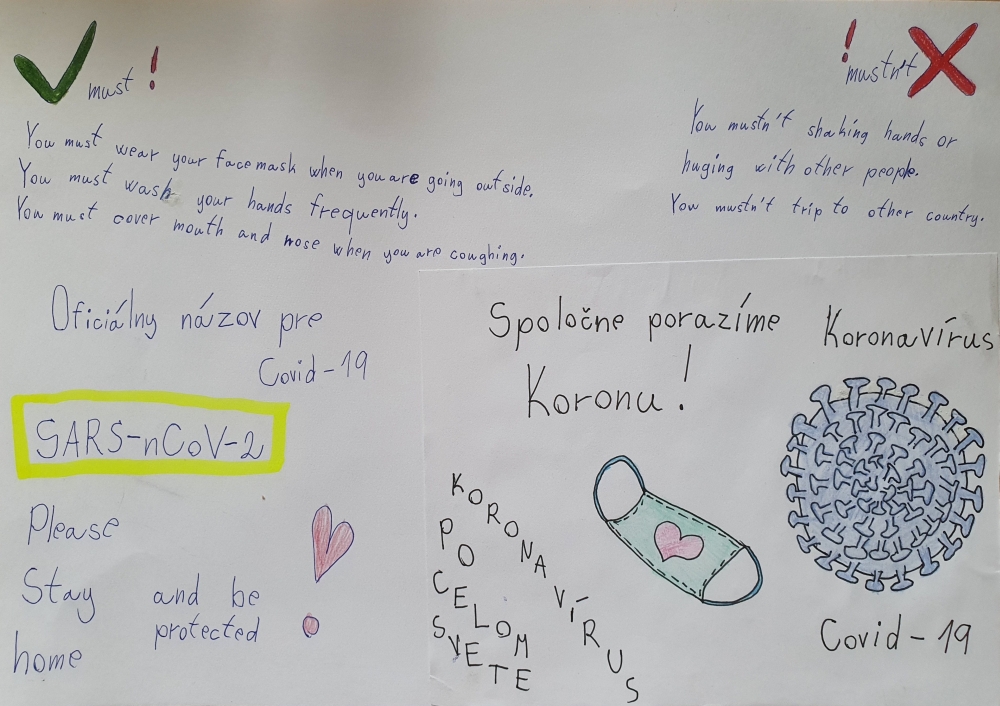 must !
! mustn't
You must wear your facemask when you are going outside.
You must wash your hands frequently.
You must cover mouth and nose when you are coughing.
You mustn't shaking hands or
huging with other people.
You mustn't trip to other country.
Oficiálny názov pre
Covid-19
SARS-nCoV-2
Please
Stay
home
and be
protected
Spoločne porazíme
Koronu!
Koronavírus
KORONAVÍRUS
PO
CELOM
SVETE
Covid-19